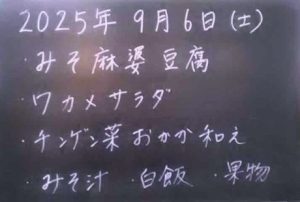 2025年 9月6日(土)
・みそ麻婆豆腐
・ワカメサラダ
・チンゲン菜おかか和え
・みそ汁 ・白飯 ・果物